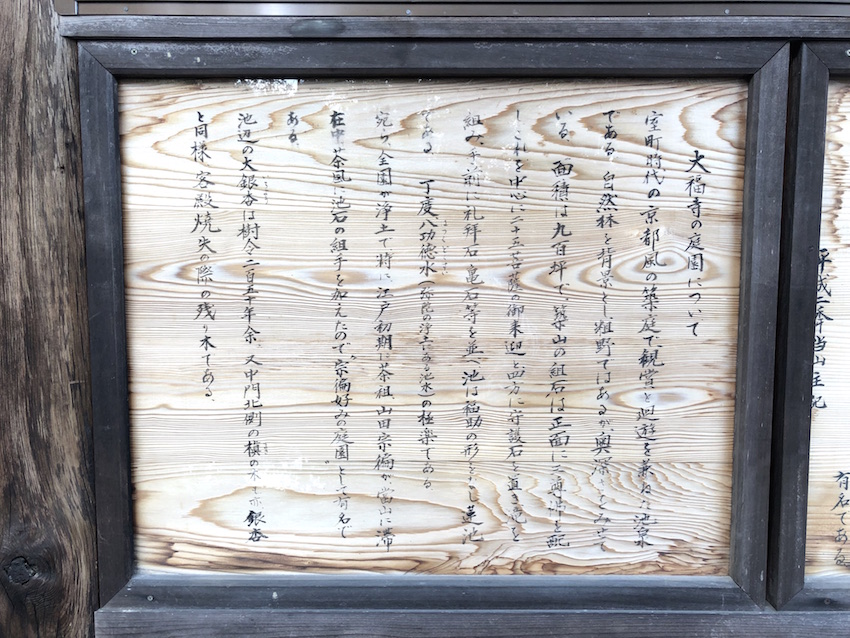 大福寺の庭園について
室町時代の京都風の築庭で観賞と廻遊を兼ねた池泉
である 自然林を背景とし粗野ではあるが、奥深
いる。面積は九百坪で、築山の組石は正面に三尊石を配
しこれを中心に二十五菩薩の御来迎 四方に守護石を置き
組み、手前に礼拝石 亀石等を並べ池は福助の形 蓮池
である。丁度八功徳水(弥陀の浄土にある池水)の極楽である
宛ら全園が浄土で特に江戸初期に茶祖、山田宗徧が当山に滞
在中茶風に池石の組手を加えたので“宗徧好みの庭園”として有名で
ある。
池辺の大銀杏は樹令二百五十年余、又中門北側の槙の木も亦銀杏
と同様 客殿焼失の際の残り木である。
平成二年当山主記
有名である